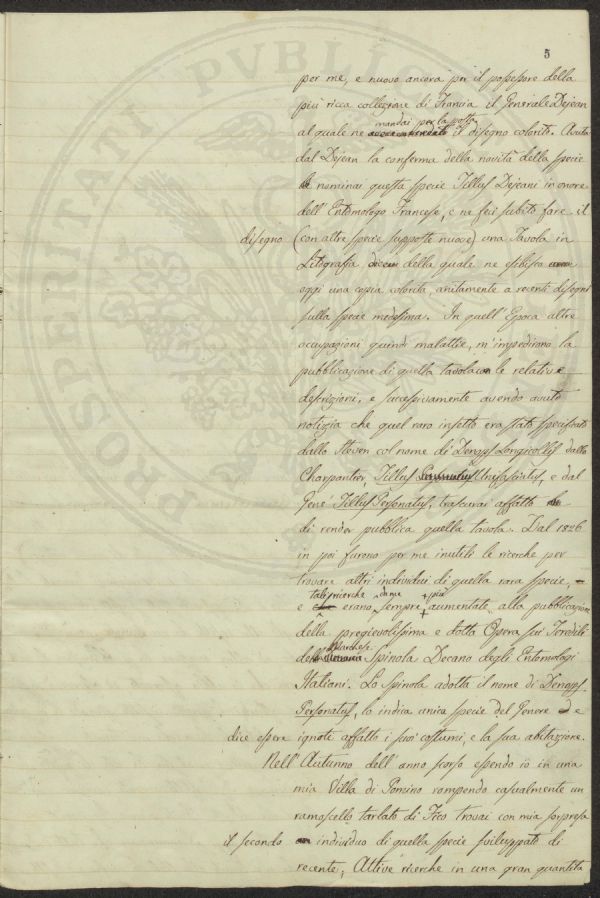 5
per me, e nuovo ancora per il possessore della
più ricca collezione di Francia il Generale Dejean
mandai per la posta
al quale ne avevo mandato il disegno colorito. Avuta
dal Dejean la conferma della novità della specie
nominai questa specie Tillus Dejeani in onore
dell' Entomologo Francese, e ne feci subito fare il
disegno (con altre specie supposte nuove) una Tavola in
Litografia della quale ne esibisco
oggi una copia colorita, unitamente a recenti disegni
sulla specie medesima. In quell' Epoca altre
occupazioni quindi malattie, m'impedirono la
pubblicazione di quella tavola con le relative
descrizioni, e successivamente avendo avuto
notizia che quel raro insetto era stato specificato
dallo Steven col nome di Denops Longicollis dallo
Charpantier, Tillus Unifasciatus, e dal
Gené Tillus Personatus, trascurai affatto
di render pubblica quella tavola. Dal 1826
in poi furono per me inutili le ricerche per
trovare altri individui di quella rara specie,
tali ricerche da me più
e erano sempre aumentate alla pubblicazione
della pregievolissima e dotta Opera sui Teredili
Marchese
del Spinola Decano degli Entomologi
Italiani. Lo Spinola adotta il nome di Denops
Personatus, lo indica unica specie del Genere e
dice essere ignoti affatto i suoi costumi, e la sua abitazione.
Nell' Autunno dell' anno scorso essendo io in una
mia Villa di Pomino rompendo casualmente un
ramoscello tarlato di Fico trovai con mia sorpresa
il secondo individuo di quella specie sviluppato di
recente; Attive ricerche in una gran quantità